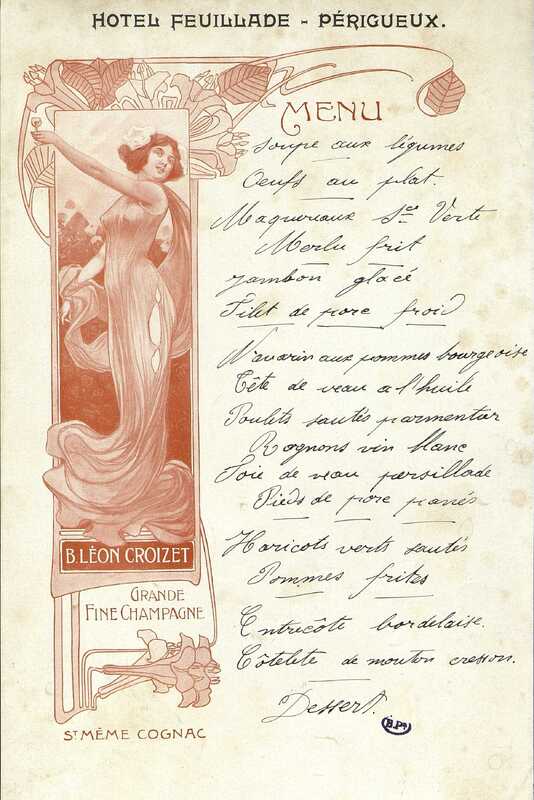 HOTEL FEUILLADE - PÉRIGUEUX.
MENU
Soupe aux légumes
Oeufs au plat.
Maquereaux Sce Verte
Merlu frit
Jambon glacé
Filet de porc froid
Navarin aux pommes bourgeoise
Tête de veau a l'huile
Poulets sautés parmentier
Rognons vin blanc
Foie de veau persillade
Pieds de porc panés
Haricots verts sautés
Pommes frites
Entrecôte bordelaise.
Côtelete de mouton cresson.
Dessert.
B. LÉON CROIZET
GRANDE
FINE CHAMPAGNE
ST MÊME COGNAC